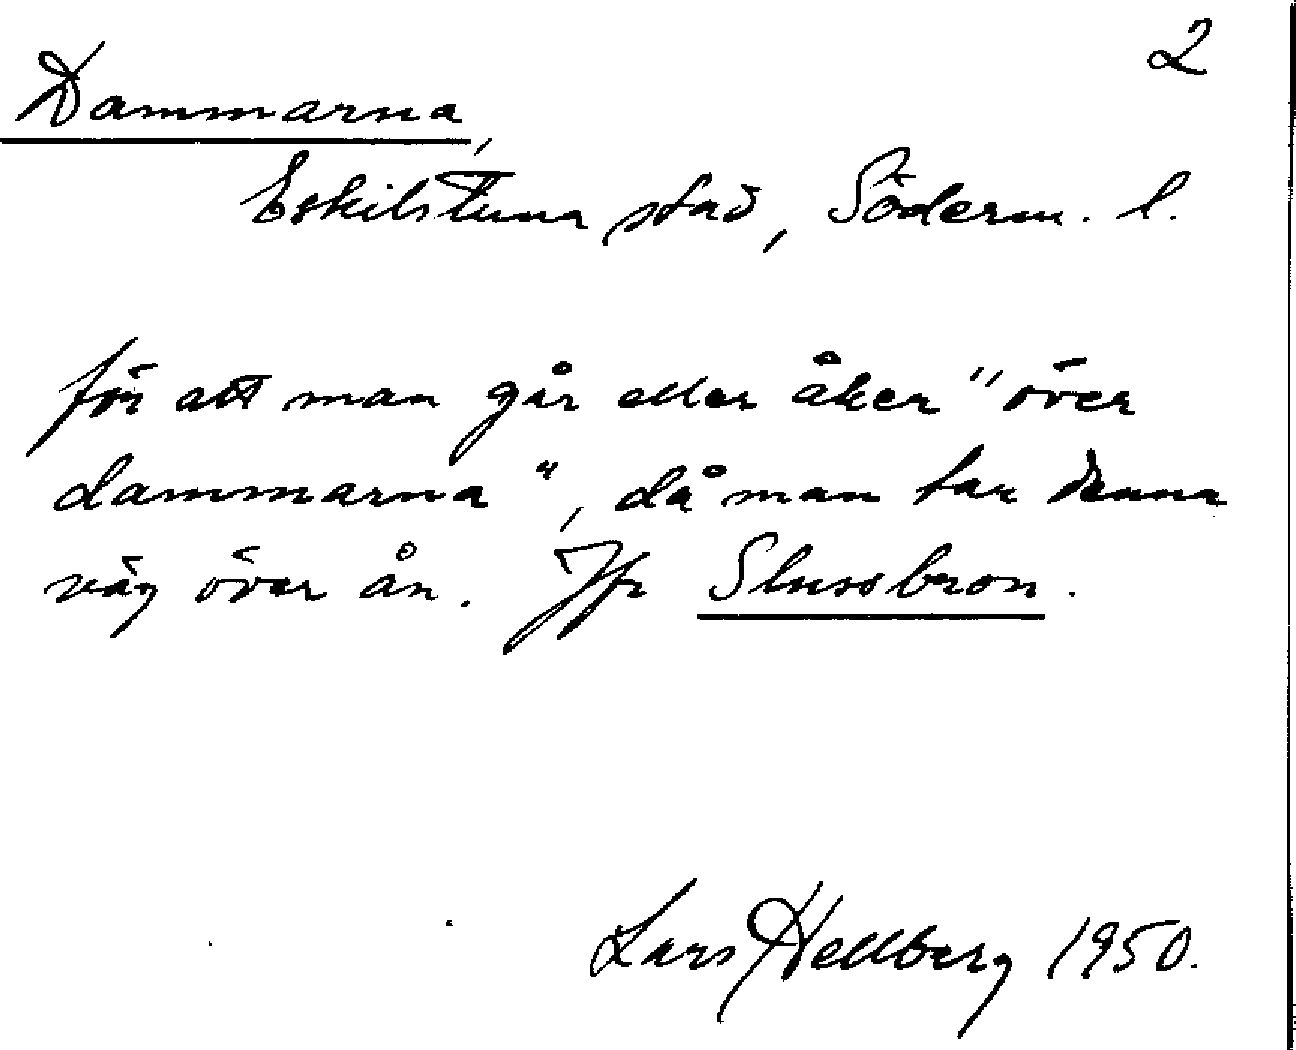 2
Dammarna,
Eskilstuna stad, Söderm. l.
för att man går eller åker "över
dammarna", då man tar denna
väg över ån. Jfr Slussbron.
Lars Hellberg 1950.